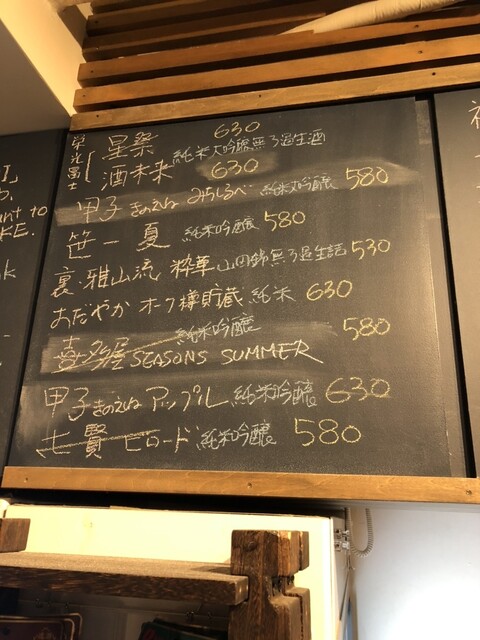 630
栄光冨士 星祭 純米大吟醸無ろ過生酒
酒未来 630
甲子 きのえね みちしるべ 純米大吟醸 580
笹一 夏 純米吟醸 580
裏・雅山流 粋華 山田錦無ろ過生詰 530
おだやか オーク樽貯蔵 純米 630
純米吟醸 580
SEASONS SUMMER
甲子 きのえね アップル 純米吟醸 630
七賢 ビロード 純米吟醸 580
ant to
KE.